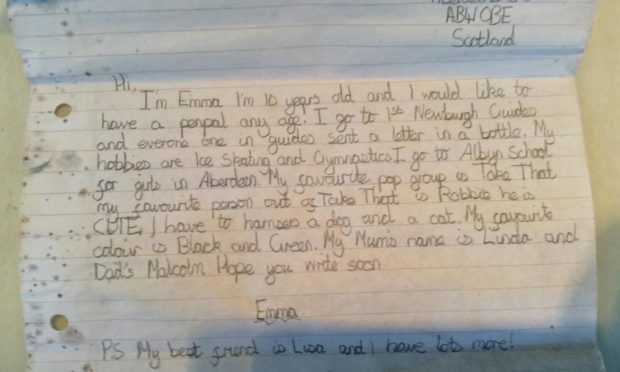 AB41 OBE
Scotland
Hi,
I'm Emma I'm 10 years old and I would like to
have a penpal any age. I go to 1st Newburgh Guides
and everone one in guides sent a letter in a bottle. My
hobbies are Ice Skating and Gymnastics I go to Albyn School
for girls in Aberdeen. My favourite pop group is Take That
my favourite person out of Take That is Robbie he is
CUTE, I have to hamsers a dog and a cat. My favourite
colour is Black and Green. My Mum's name is Linda and
Dad's Malcolm Hope you write soon.
Emma
PS My best friend is Lisa and I have lots more!